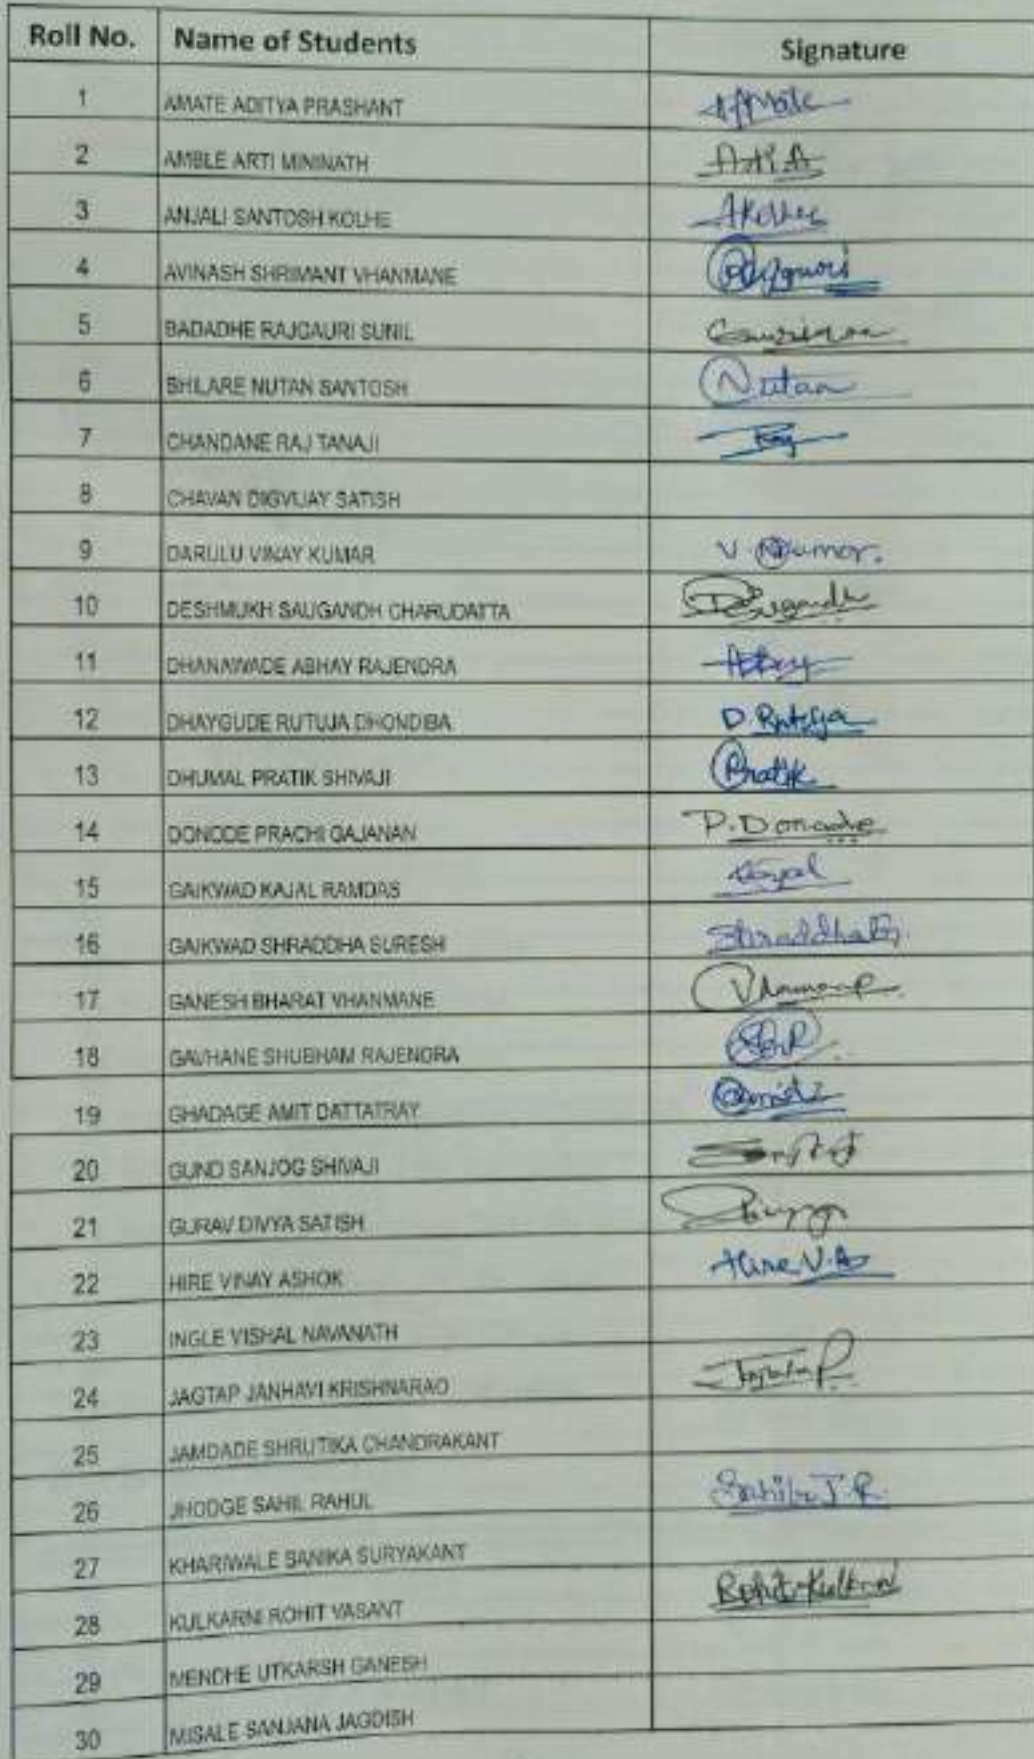 Roll No. Name of Students Signature
1 AMATE ADITYA PRASHANT
2 AMBLE ARTI MININATH Arti.A
3 ANJALI SANTOSH KOLHE AKolhe
4 AVINASH SHRIMANT VHANMANE
5 BADADHE RAJGAURI SUNIL
6 BHILARE NUTAN SANTOSH Nutan
7 CHANDANE RAJ TANAJI Raj
8 CHAVAN DIGVIJAY SATISH
9 DARULU VINAY KUMAR V. Kumar.
10 DESHMUKH SAUGANDH CHARUDATTA
11 DHANAWADE ABHAY RAJENDRA Abhay
12 DHAYGUDE RUTUJA DHONDIBA D. Rutuja
13 DHUMAL PRATIK SHIVAJI Pratik
14 DONODE PRACHI GAJANAN P. Donode
15 GAIKWAD KAJAL RAMDAS Kajal
16 GAIKWAD SHRADDHA SURESH ShraddhaG.
17 GANESH BHARAT VHANMANE Vhanmane
18 GAVHANE SHUBHAM RAJENDRA
19 GHADAGE AMIT DATTATRAY Amit
20 GUND SANJOG SHIVAJI
21 GURAV DIVYA SATISH
22 HIRE VINAY ASHOK Hire V.A
23 INGLE VISHAL NAVANATH
24 JAGTAP JANHAVI KRISHNARAO
25 JAMDADE SHRUTIKA CHANDRAKANT
26 JHODGE SAHIL RAHUL Sahil J.R.
27 KHARIWALE SANIKA SURYAKANT
28 KULKARNI ROHIT VASANT Rohit Kulkarni
29 MENDHE UTKARSH GANESH
30 MISALE SANJANA JAGDISH